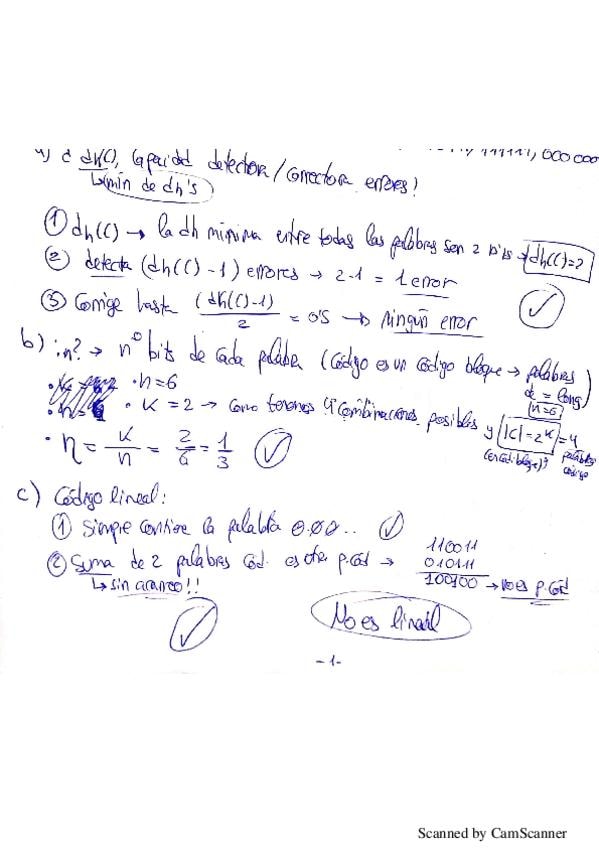 a) ¿ dh(C), capacidad detectora / correctora errores?
111111, 000000
↳ min de dh's
① dh(C) → la dh mínima entre todas las palabras son 2 bits → dh(C)=2
② detecta (dh(C) - 1) errores → 2-1 = 1 error
③ Corrige hasta (dh(C)-1)/2 = 0'5 → ningún error
b) ¿n? → nº bits de cada palabra (código es un código bloque → palabras de = long n=6)
· n=6
· K = 2 → como tenemos 4 combinaciones posibles y |C| = 2^K = 4 palabras código
(en cód. bloque)
· η = K/n = 2/6 = 1/3
c) Código lineal:
① Siempre contiene la palabra 0.00..
② Suma de 2 palabras cód. es otra p.cód →
110011
010111
100100 → no es p.cód
↳ sin acarreo!!
No es lineal
-1-
Scanned by CamScanner